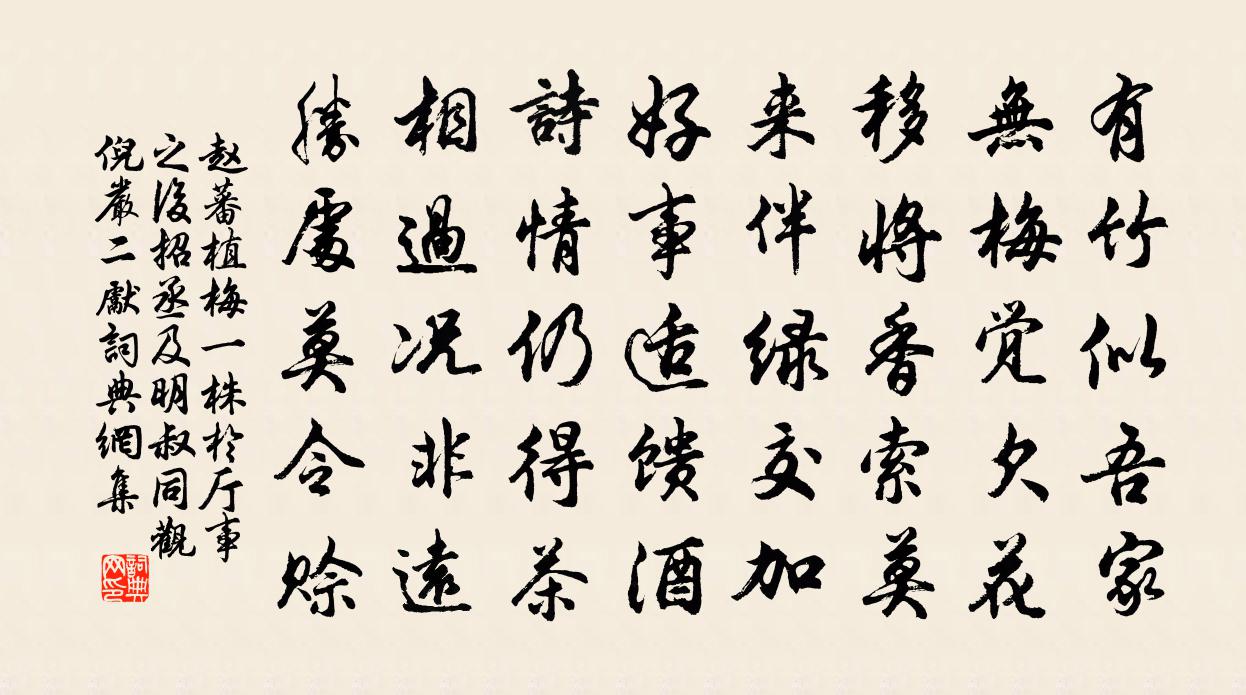 有竹似吾家
無梅觉欠花
移將香索莫
来伴绿交加
好事适馈酒
詩情仍得茶
相過况非遠
勝處莫令賒
赵蕃植梅一株於厅事
之後招丞及明叔同觀
倪嚴二獻詞典網集
詞典
网印